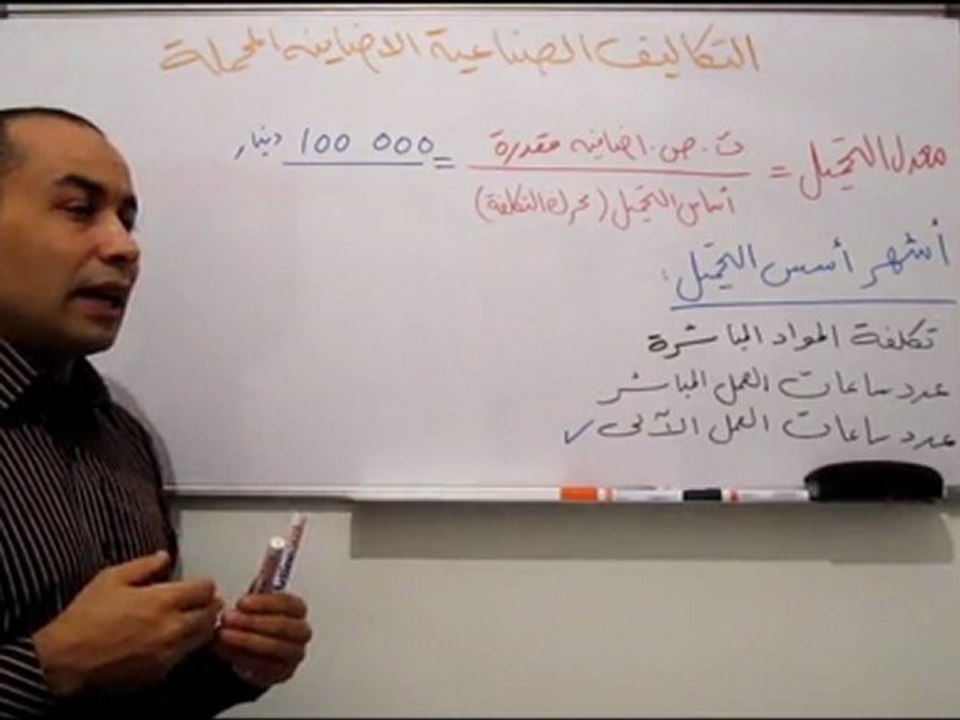 التكاليف الصناعية الاضافية المحملة
معدل التحميل = ت.ص.اضافية مقدرة = 100 000 دينار
أساس التحميل (محرك التكلفة)
أشهر أسس التحميل:
تكلفة المواد المباشرة
عدد ساعات العمل المباشر
عدد ساعات العمل الآلى ✓